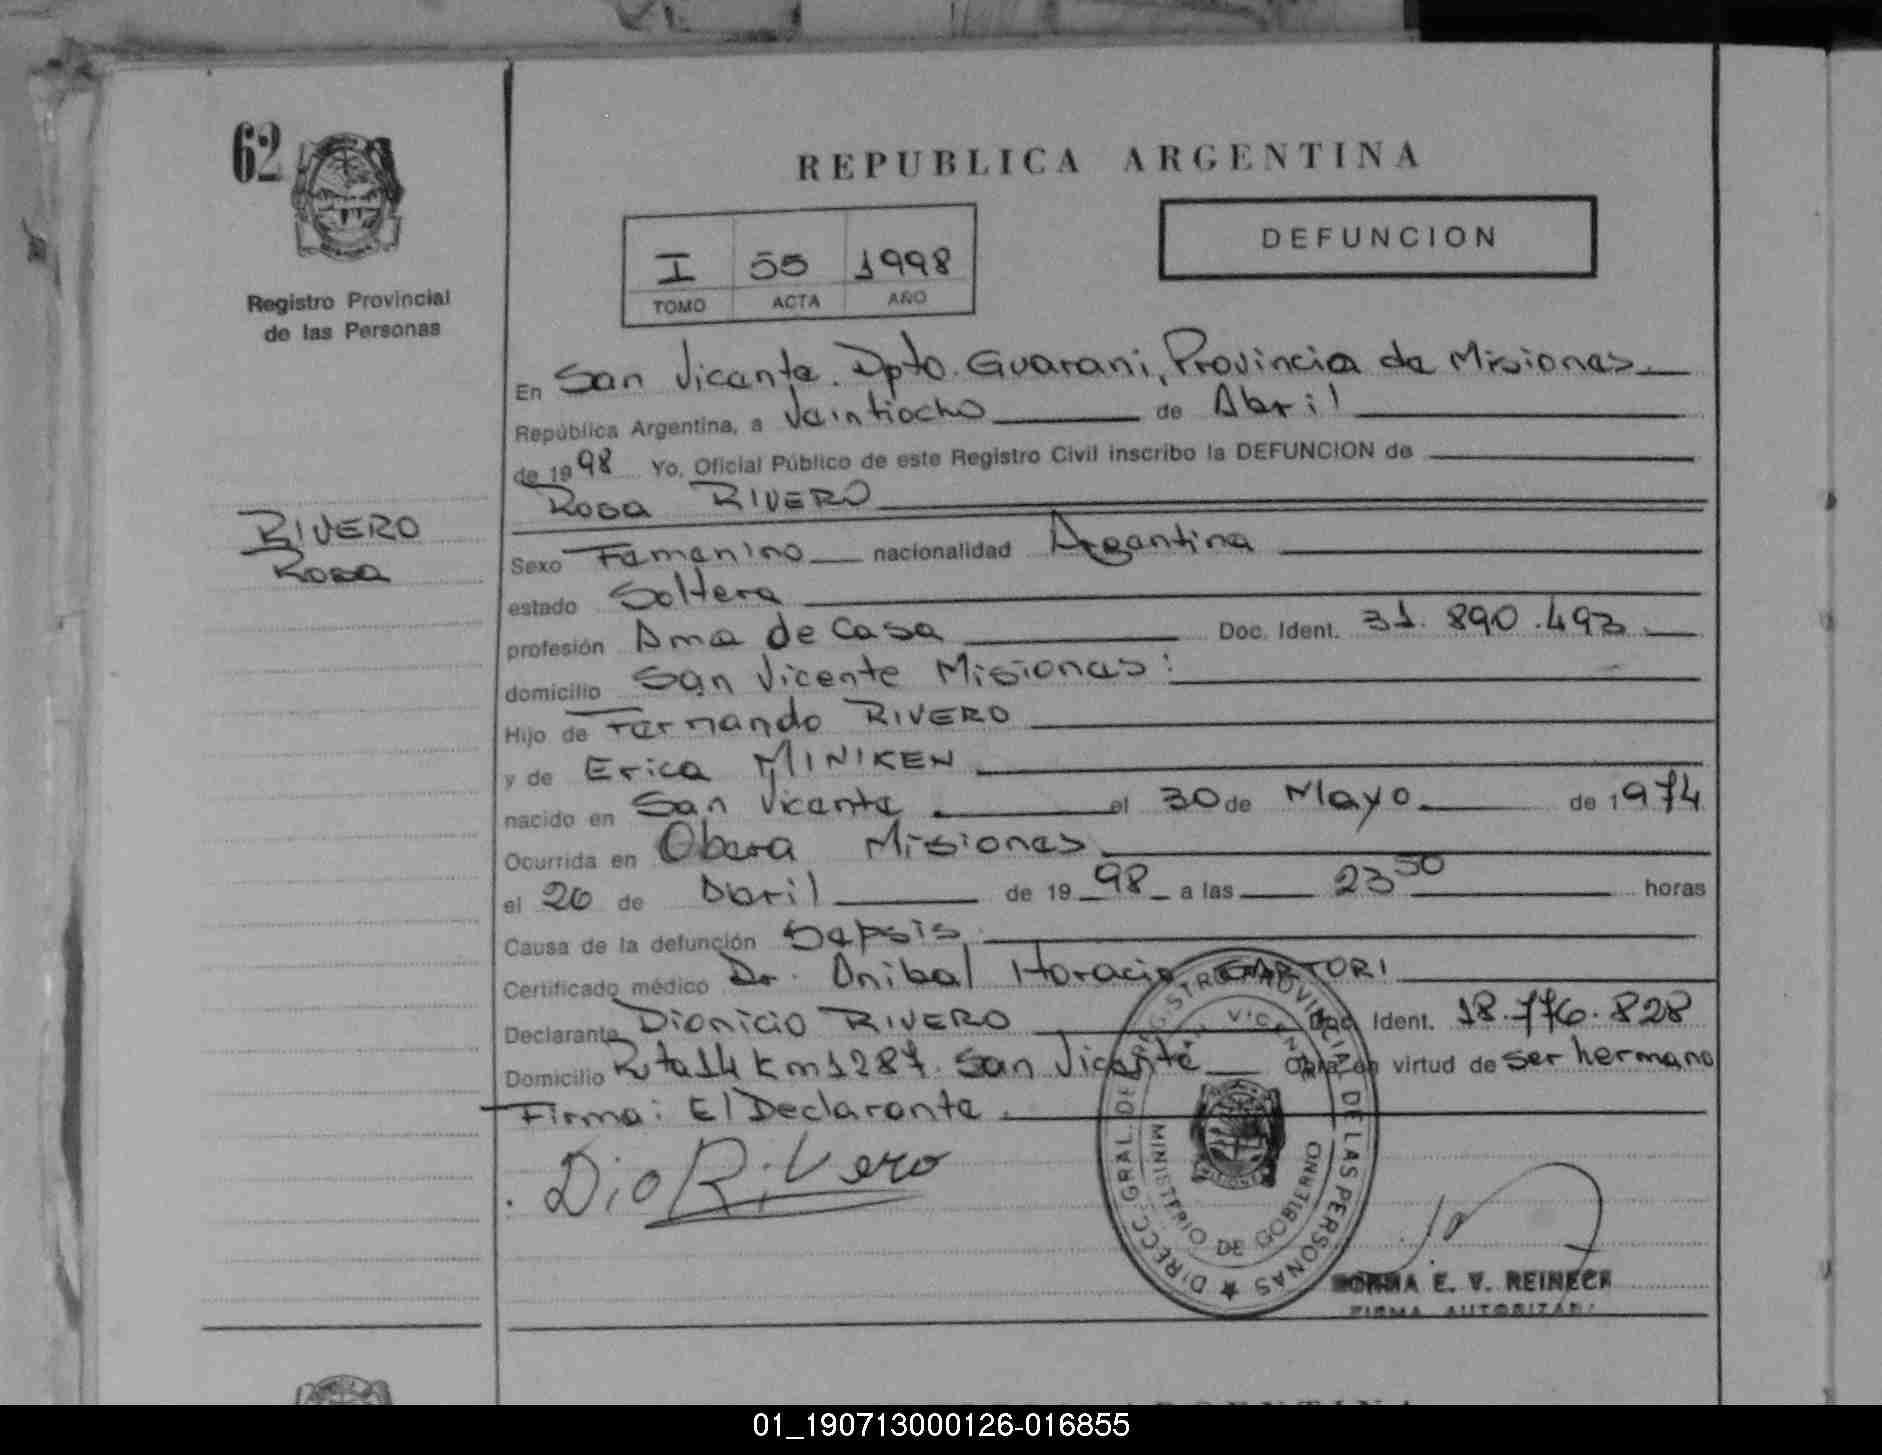 62
REPUBLICA ARGENTINA
DEFUNCION
I 55 1998
TOMO ACTA AÑO
Registro Provincial
de las Personas
En San Vicente. Dpto. Guarani, Provincia de Misiones.
República Argentina, a Veintiocho de Abril
de 1998 Yo, Oficial Público de este Registro Civil inscribo la DEFUNCION de
Rosa RIVERO
RIVERO
Rosa
Sexo Femenino nacionalidad Argentina
estado Soltera
profesión Ama de Casa Doc. Ident. 31.890.493
domicilio San Vicente Misiones:
Hijo de Fernando RIVERO
y de Erica MINIKEN
nacido en San Vicente el 30 de Mayo de 1974
Ocurrida en Obera Misiones
el 26 de Abril de 1998 a las 23 50 horas
Causa de la defunción Sepsis.
Certificado médico Dr. Anibal Horacio SARTORI
Declarante Dionicio RIVERO Doc. Ident. 18.776.828
Domicilio Ruta 14 Km 1287. San Vicente Obra en virtud de ser hermano
Firma: El Declarante.
Dio Rivero
DIRECC. GRAL. DEL REGISTRO PROVINCIAL DE LAS PERSONAS
SAN VICENTE
MINISTERIO DE GOBIERNO
NORMA E. V. REINECK
FIRMA AUTORIZADA
01_190713000126-016855